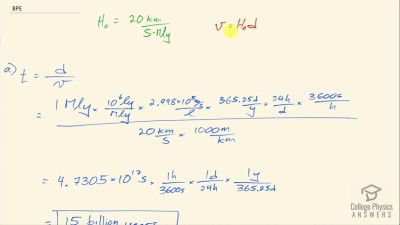 8PE
H₀ = 20 km / s·Mly    v = H₀d
a) t = d / v
= 1 Mly × 10⁶ ly / Mly × 2.998×10⁸ m/s / l × 365.25d / y × 24h / d × 3600s / h
20 km / s × 1000m / km
= 4.7305×10¹⁷ s × 1h / 3600s × 1d / 24h × 1y / 365.25d
= 15 billion years
College Physics
ANSWERS